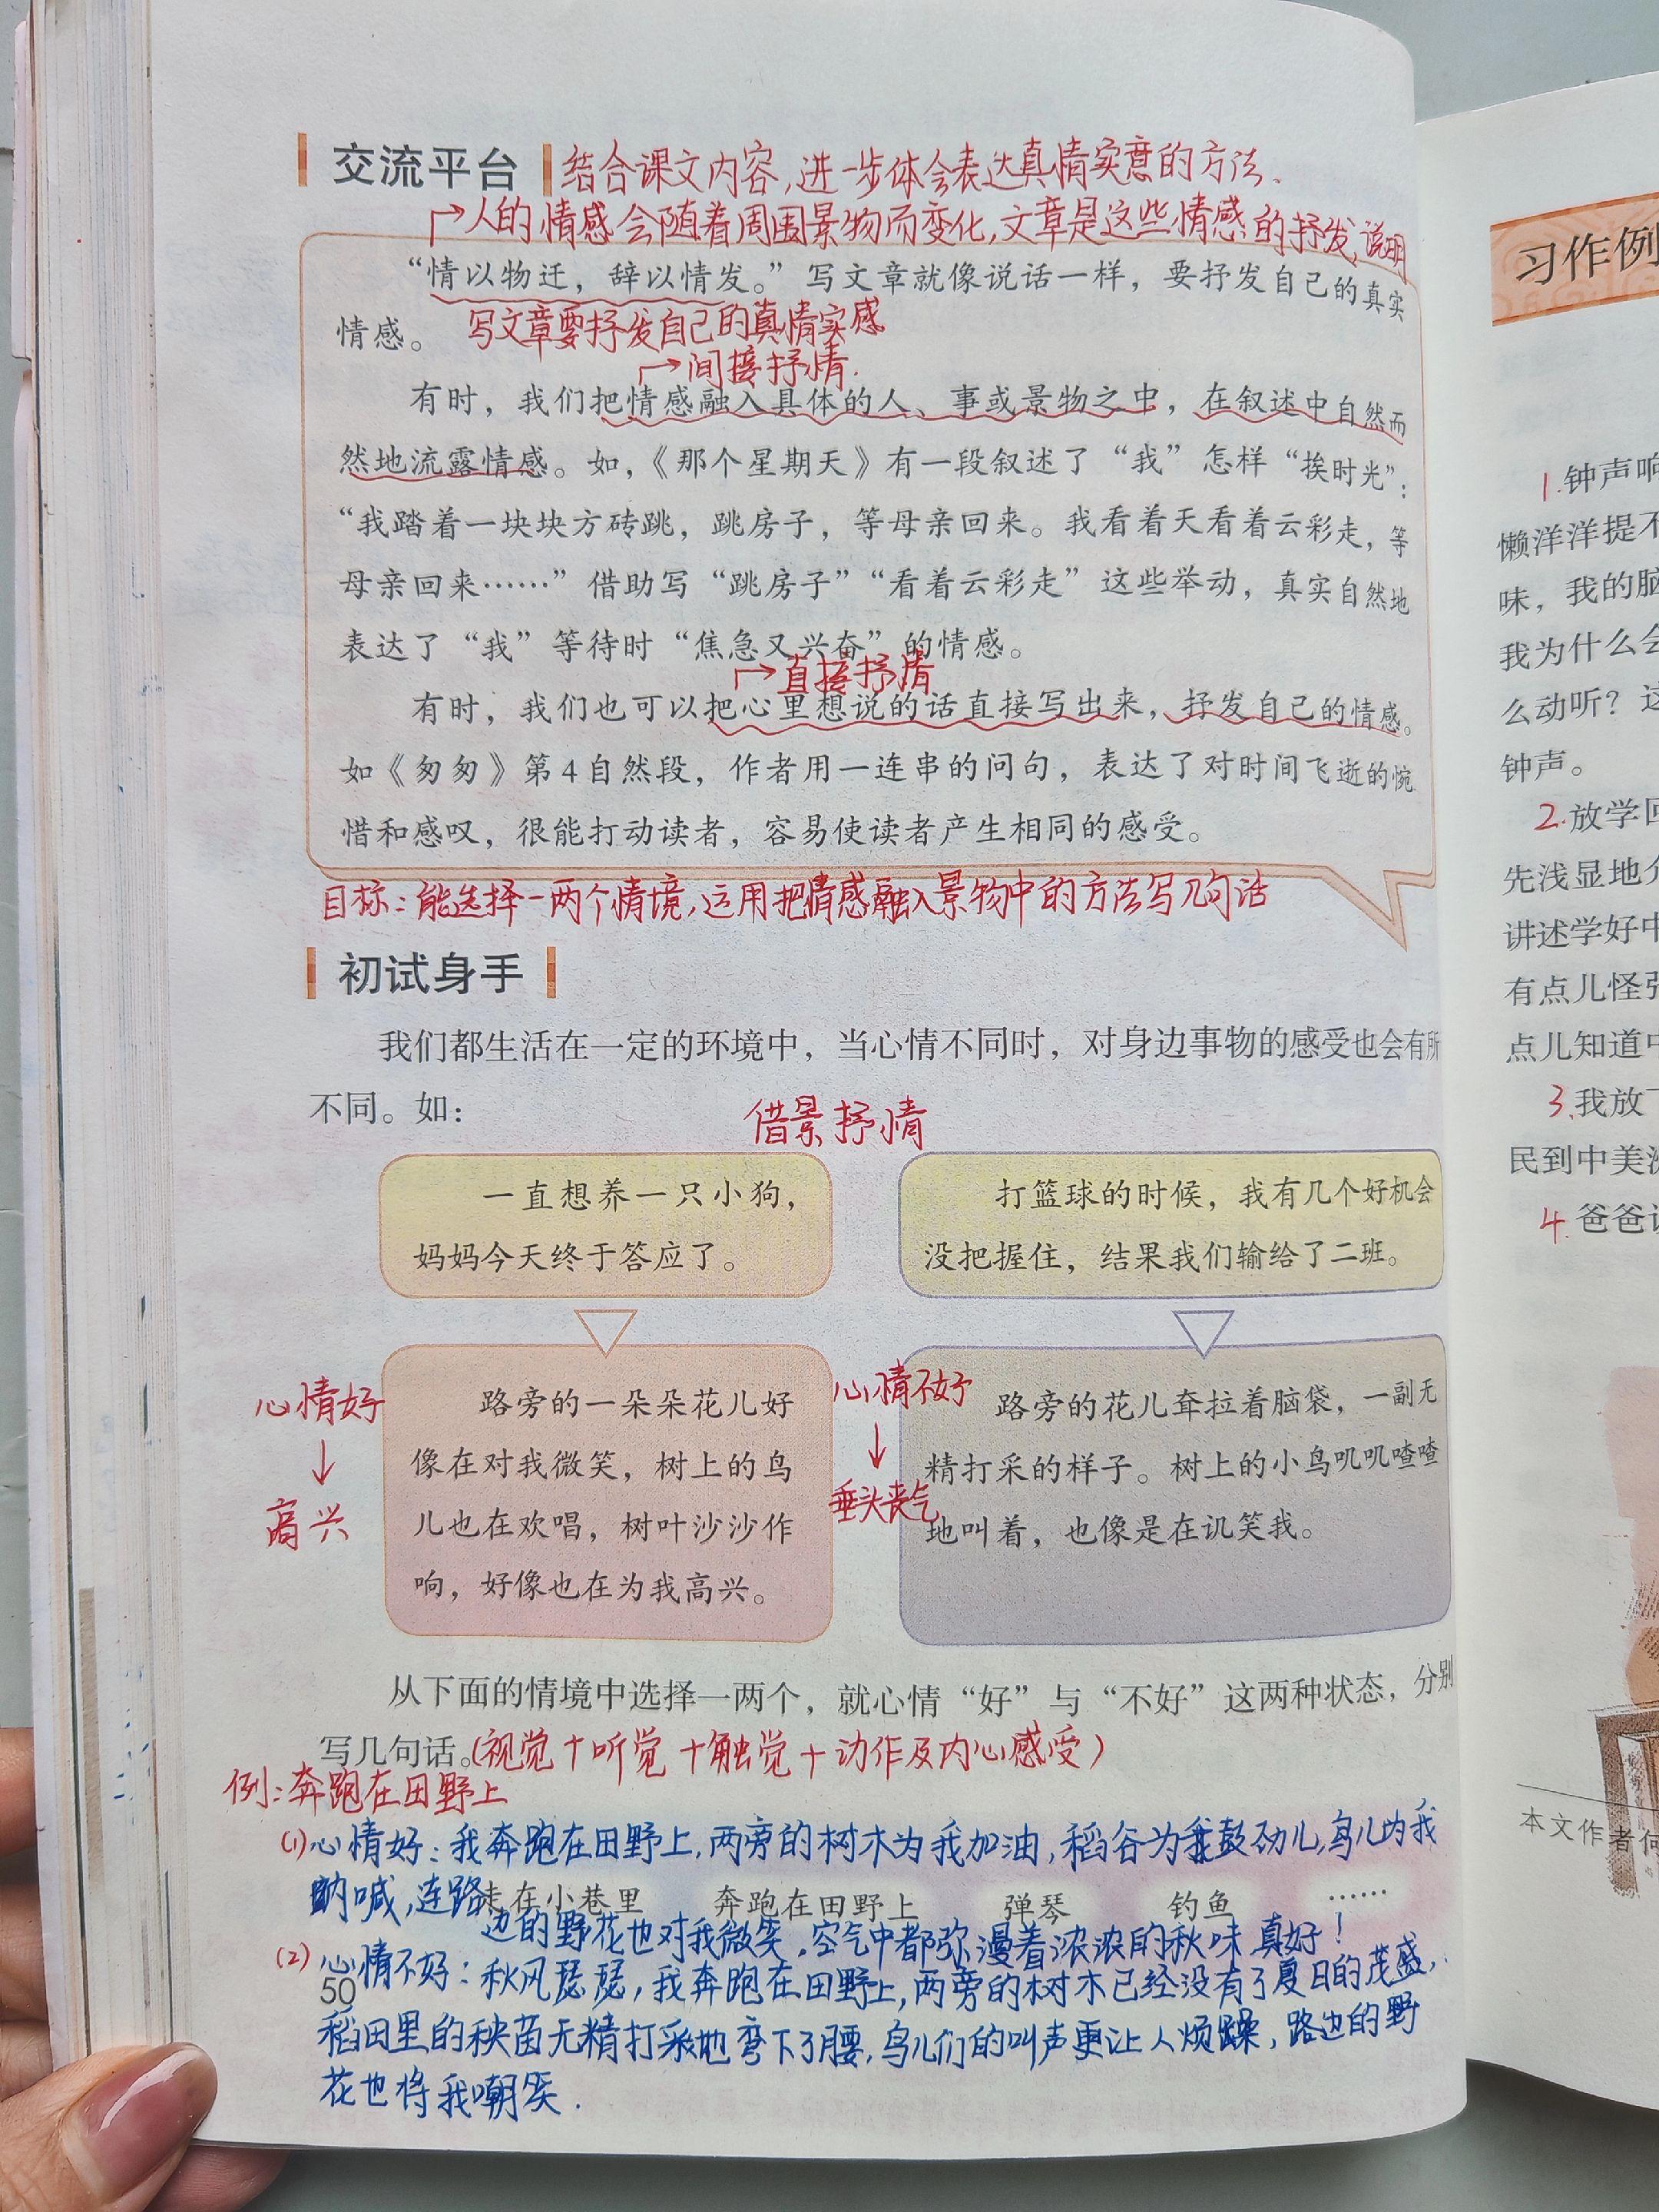 交流平台 结合课文内容,进一步体会表达真情实意的方法.
→人的情感会随着周围景物而变化,文章是这些情感的抒发,说明
“情以物迁，辞以情发。”写文章就像说话一样，要抒发自己的真实
情感。 写文章要抒发自己的真情实感
→间接抒情.
有时，我们把情感融入具体的人、事或景物之中，在叙述中自然而
然地流露情感。如，《那个星期天》有一段叙述了“我”怎样“挨时光”：
“我踏着一块块方砖跳，跳房子，等母亲回来。我看着天看着云彩走，等
母亲回来……”借助写“跳房子”“看着云彩走”这些举动，真实自然地
表达了“我”等待时“焦急又兴奋”的情感。
→直接抒情
有时，我们也可以把心里想说的话直接写出来，抒发自己的情感。
如《匆匆》第4自然段，作者用一连串的问句，表达了对时间飞逝的惋
惜和感叹，很能打动读者，容易使读者产生相同的感受。
目标：能选择一两个情境,运用把情感融入景物中的方法写几句话
初试身手
我们都生活在一定的环境中，当心情不同时，对身边事物的感受也会有所
不同。如：
借景抒情
一直想养一只小狗，
妈妈今天终于答应了。
打篮球的时候，我有几个好机会
没把握住，结果我们输给了二班。
心情好
↓
高兴
路旁的一朵朵花儿好
像在对我微笑，树上的鸟
儿也在欢唱，树叶沙沙作
响，好像也在为我高兴。
心情不好
↓
垂头丧气
路旁的花儿耷拉着脑袋，一副无
精打采的样子。树上的小鸟叽叽喳喳
地叫着，也像是在讥笑我。
从下面的情境中选择一两个，就心情“好”与“不好”这两种状态，分别
写几句话。(视觉+听觉+触觉+动作及内心感受)
例:奔跑在田野上
(1)心情好：我奔跑在田野上,两旁的树木为我加油,稻谷为我鼓劲儿,鸟儿为我
呐喊,连路
走在小巷里 奔跑在田野上 弹琴 钓鱼 ……
边的野花也对我微笑,空气中都弥漫着浓浓的秋味真好!
(2)心情不好：秋风瑟瑟,我奔跑在田野上,两旁的树木已经没有了夏日的茂盛,
50
稻田里的秧苗无精打采地弯下了腰,鸟儿们的叫声更让人烦躁,路边的野
花也将我嘲笑.
习作例
1.钟声响
懒洋洋提不
味，我的脑
我为什么会
么动听？这
钟声。
2.放学回
先浅显地介
讲述学好中
有点儿怪
点儿知道中
3.我放下
民到中美
4.爸爸
本文作者何